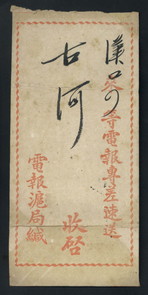 等電報專差速送
漢口
古河
收啓
電報滬局緘